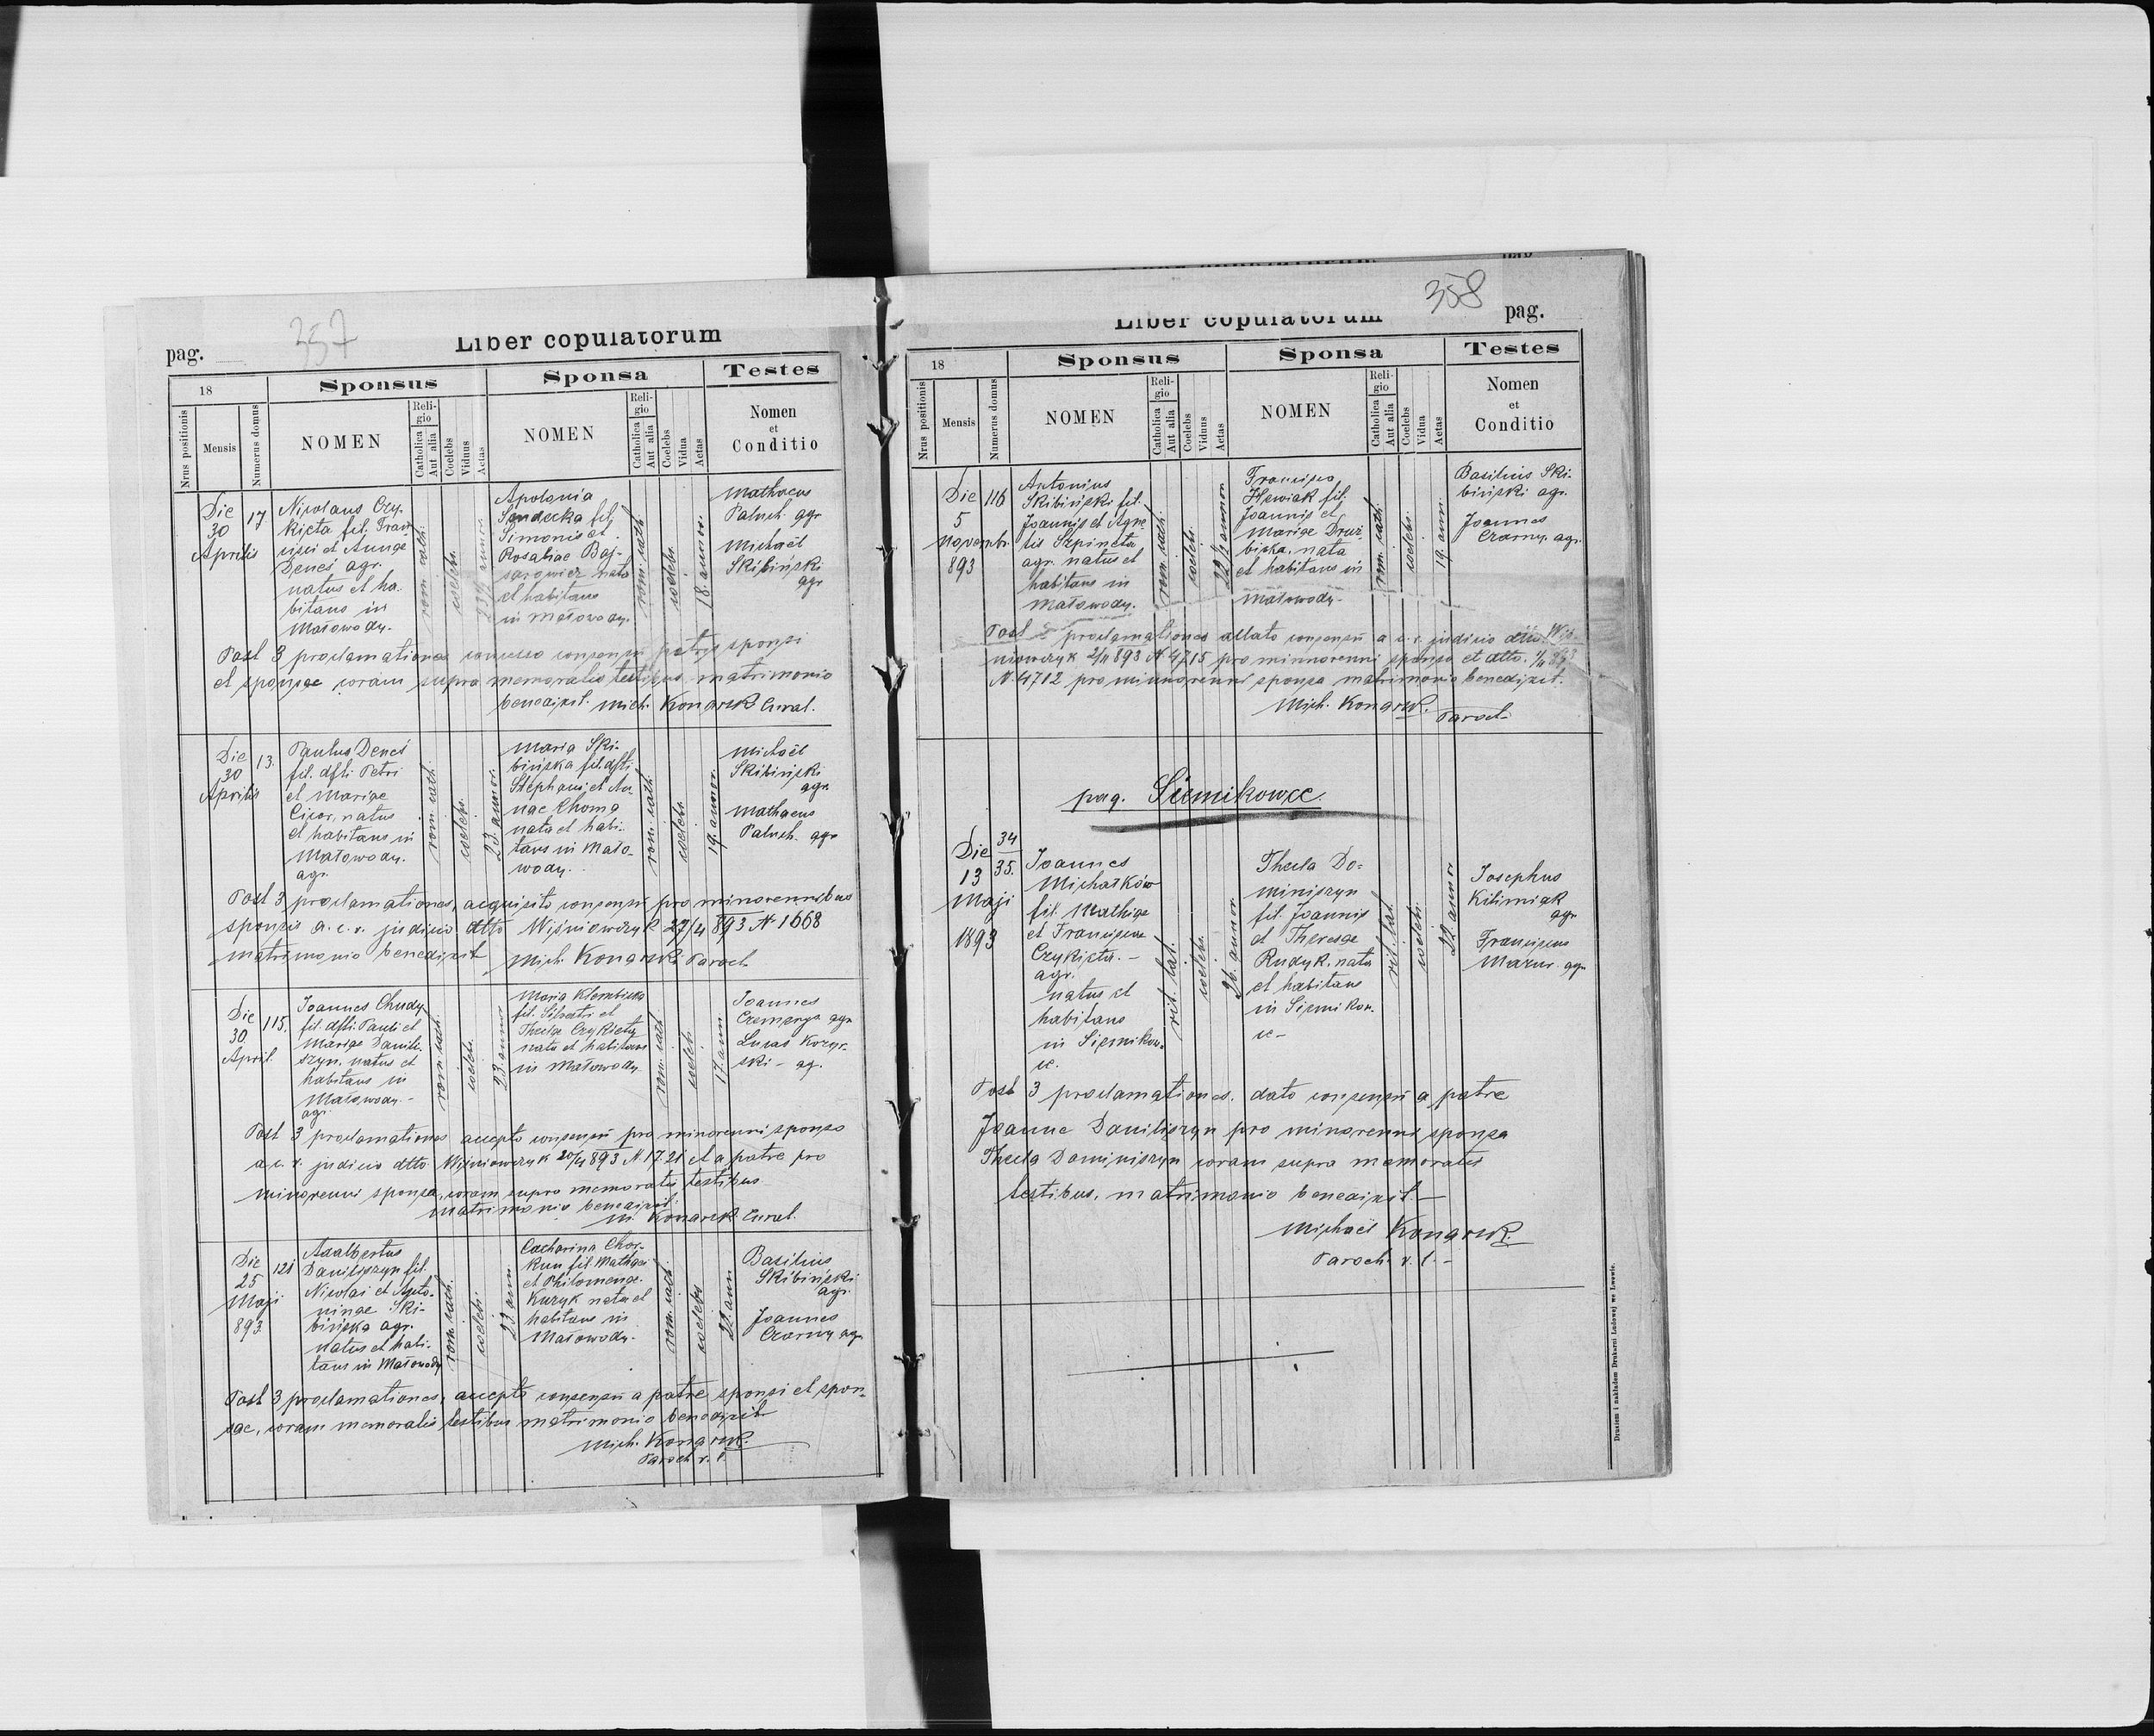 357
pag.
Liber copulatorum
18
Sponsus
Sponsa
Testes
Nrus positionis
Mensis
Numerus domus
NOMEN
Religio
Catholica
Aut alia
Coelebs
Viduus
Aetas
NOMEN
Religio
Catholica
Aut alia
Coelebs
Vidua
Aetas
Nomen
et
Conditio
Die
30
Aprilis
17
Nicolaus Czy-
kieta fil. Fran-
cisci et Annae
Deneś agr.
natus et ha-
bitans in
Małowody.
rom. cath.
coelebs.
Apolonia
Sendecka fil.
Simonis et
Rosaliae Baj-
sarowicz nata
et habitans
in Małowody.
rom. cath.
coelebs.
18 annor.
Mathaeus
Paluch. agr
Michaël
Skibiński
agr
Post 3 proclamationes concesso consensu patris sponsi
et sponsae coram supra memoratis testibus matrimonio
benedixit. Mich. Konarek Curat.
Die
30
Aprilis
13.
Paulus Deneś
fil. dfti Petri
et Mariae
Cicor. natus
et habitans in
Małowody.
agr.
rom. cath.
coelebs.
23. annor.
Maria Ski-
bińska fil. dfti
Stephani et An-
nae Choma
nata et habi-
tans in Mało-
wody.
rom. cath.
coelebs.
19. annor.
Michaël
Skibiński
agr.
Mathaeus
Paluch. agr
Post 3 proclamationes, acquisito consensu pro minorennibus
sponsis a. c. r. judicio dtto Wiśniowczyk 27/4 893 N 1668
matrimonio benedixit Mich. Konarek Paroch
Die
30
April.
115.
Joannes Chudy
fil. dfti Pauli et
Mariae Danile-
szyn. natus et
habitans in
Małowody.-
agr.
rom. cath.
coelebs.
23. annor
Maria Klembicka
fil. Silvestri et
Theclae Czykieta
nata et habitans
in Małowody
rom. cath
coelebs.
17. ann.
Joannes
agr
Lucas
ski - ag.
Post 3 proclamationes accepto consensu pro minorenni sponso
a c. r. judicio dtto Wiśniowczyk 20/4 893 N. 1721 et a patre pro
minorenni sponsa, coram supra memoratis testibus
matrimonio benedixit.
M. Konarek Curat.
Die
25
Maji
893
121
Adalbertus
Daniliszyn fil.
Nicolai et Anto-
ninae Ski-
bińska agr.
natus et habi-
tans in Małowody
rom. cath.
coelebs.
23 ann.
Catharina Chor-
kun fil. Mathaei
et Philomenae
Kuzyk nata et
habitans in
Małowody.
rom. cath.
coelebs
22. ann
Basilius
Skibiński
agr.
Joannes
Czarny ag.
Post 3 proclamationes, accepto consensu a patre sponsi et spon-
sae, coram memoratis testibus matrimonio benedixit
Mich. Konarek.
Paroch r. l.
358
pag.
Liber copulatorum
18
Sponsus
Sponsa
Testes
Nrus positionis
Mensis
Numerus domus
NOMEN
Religio
Catholica
Aut alia
Coelebs
Viduus
Aetas
NOMEN
Religio
Catholica
Aut alia
Coelebs
Vidua
Aetas
Nomen
et
Conditio
Die
5
Novembr.
893
116
Antonius
Skibiński fil.
Joannis et Agne-
tis Szpineta
agr. natus et
habitans in
Małowody.
rom. cath.
coelebs.
22 1/2 annor
Francisca
fil.
Joannis et
Mariae Druz-
bicka. nata
et habitans in
Małowody.
rom. cath.
coelebs.
19. ann.
Basilius Ski-
biński agr.
Joannes
Czarny. agr.
Post proclamationes allato consensu a c. r. judicio dtto Wis-
niowczyk 2/11 893 N 4715 pro minnorenni sponso et dtto. 1/11 893
N. 4712 pro minnorenni sponsa matrimonio benedixit.
Mich. Konarek.
Paroch.
pag. Siemikowce.
Die
13
Maji
1893
34
35.
Joannes
Michałków
fil. Mathiae
et Franciscae
Czykieta. -
agr.
natus et
habitans
in Siemikow-
ce.
rit. lat.
coelebs.
26. annor.
Thecla Do-
miniszyn
fil. Joannis
et Theresae
Rudyk. nata
et habitans
in Siemikow-
ce -
rit. lat.
coelebs.
22 annor
Josephus
Kilimiak
agr
Franciscus
Mazur. agr.
Post 3 proclamationes. dato consensu a patre
Joanne Daniliszyn pro minorenni sponsa
Thecla Dominiszyn coram supra memoratis
testibus. matrimonio benedixit. -
Michaël Konarek.
Paroch. r. l. -
Drukiem i nakładem Drukarni Ludowej we Lwowie.